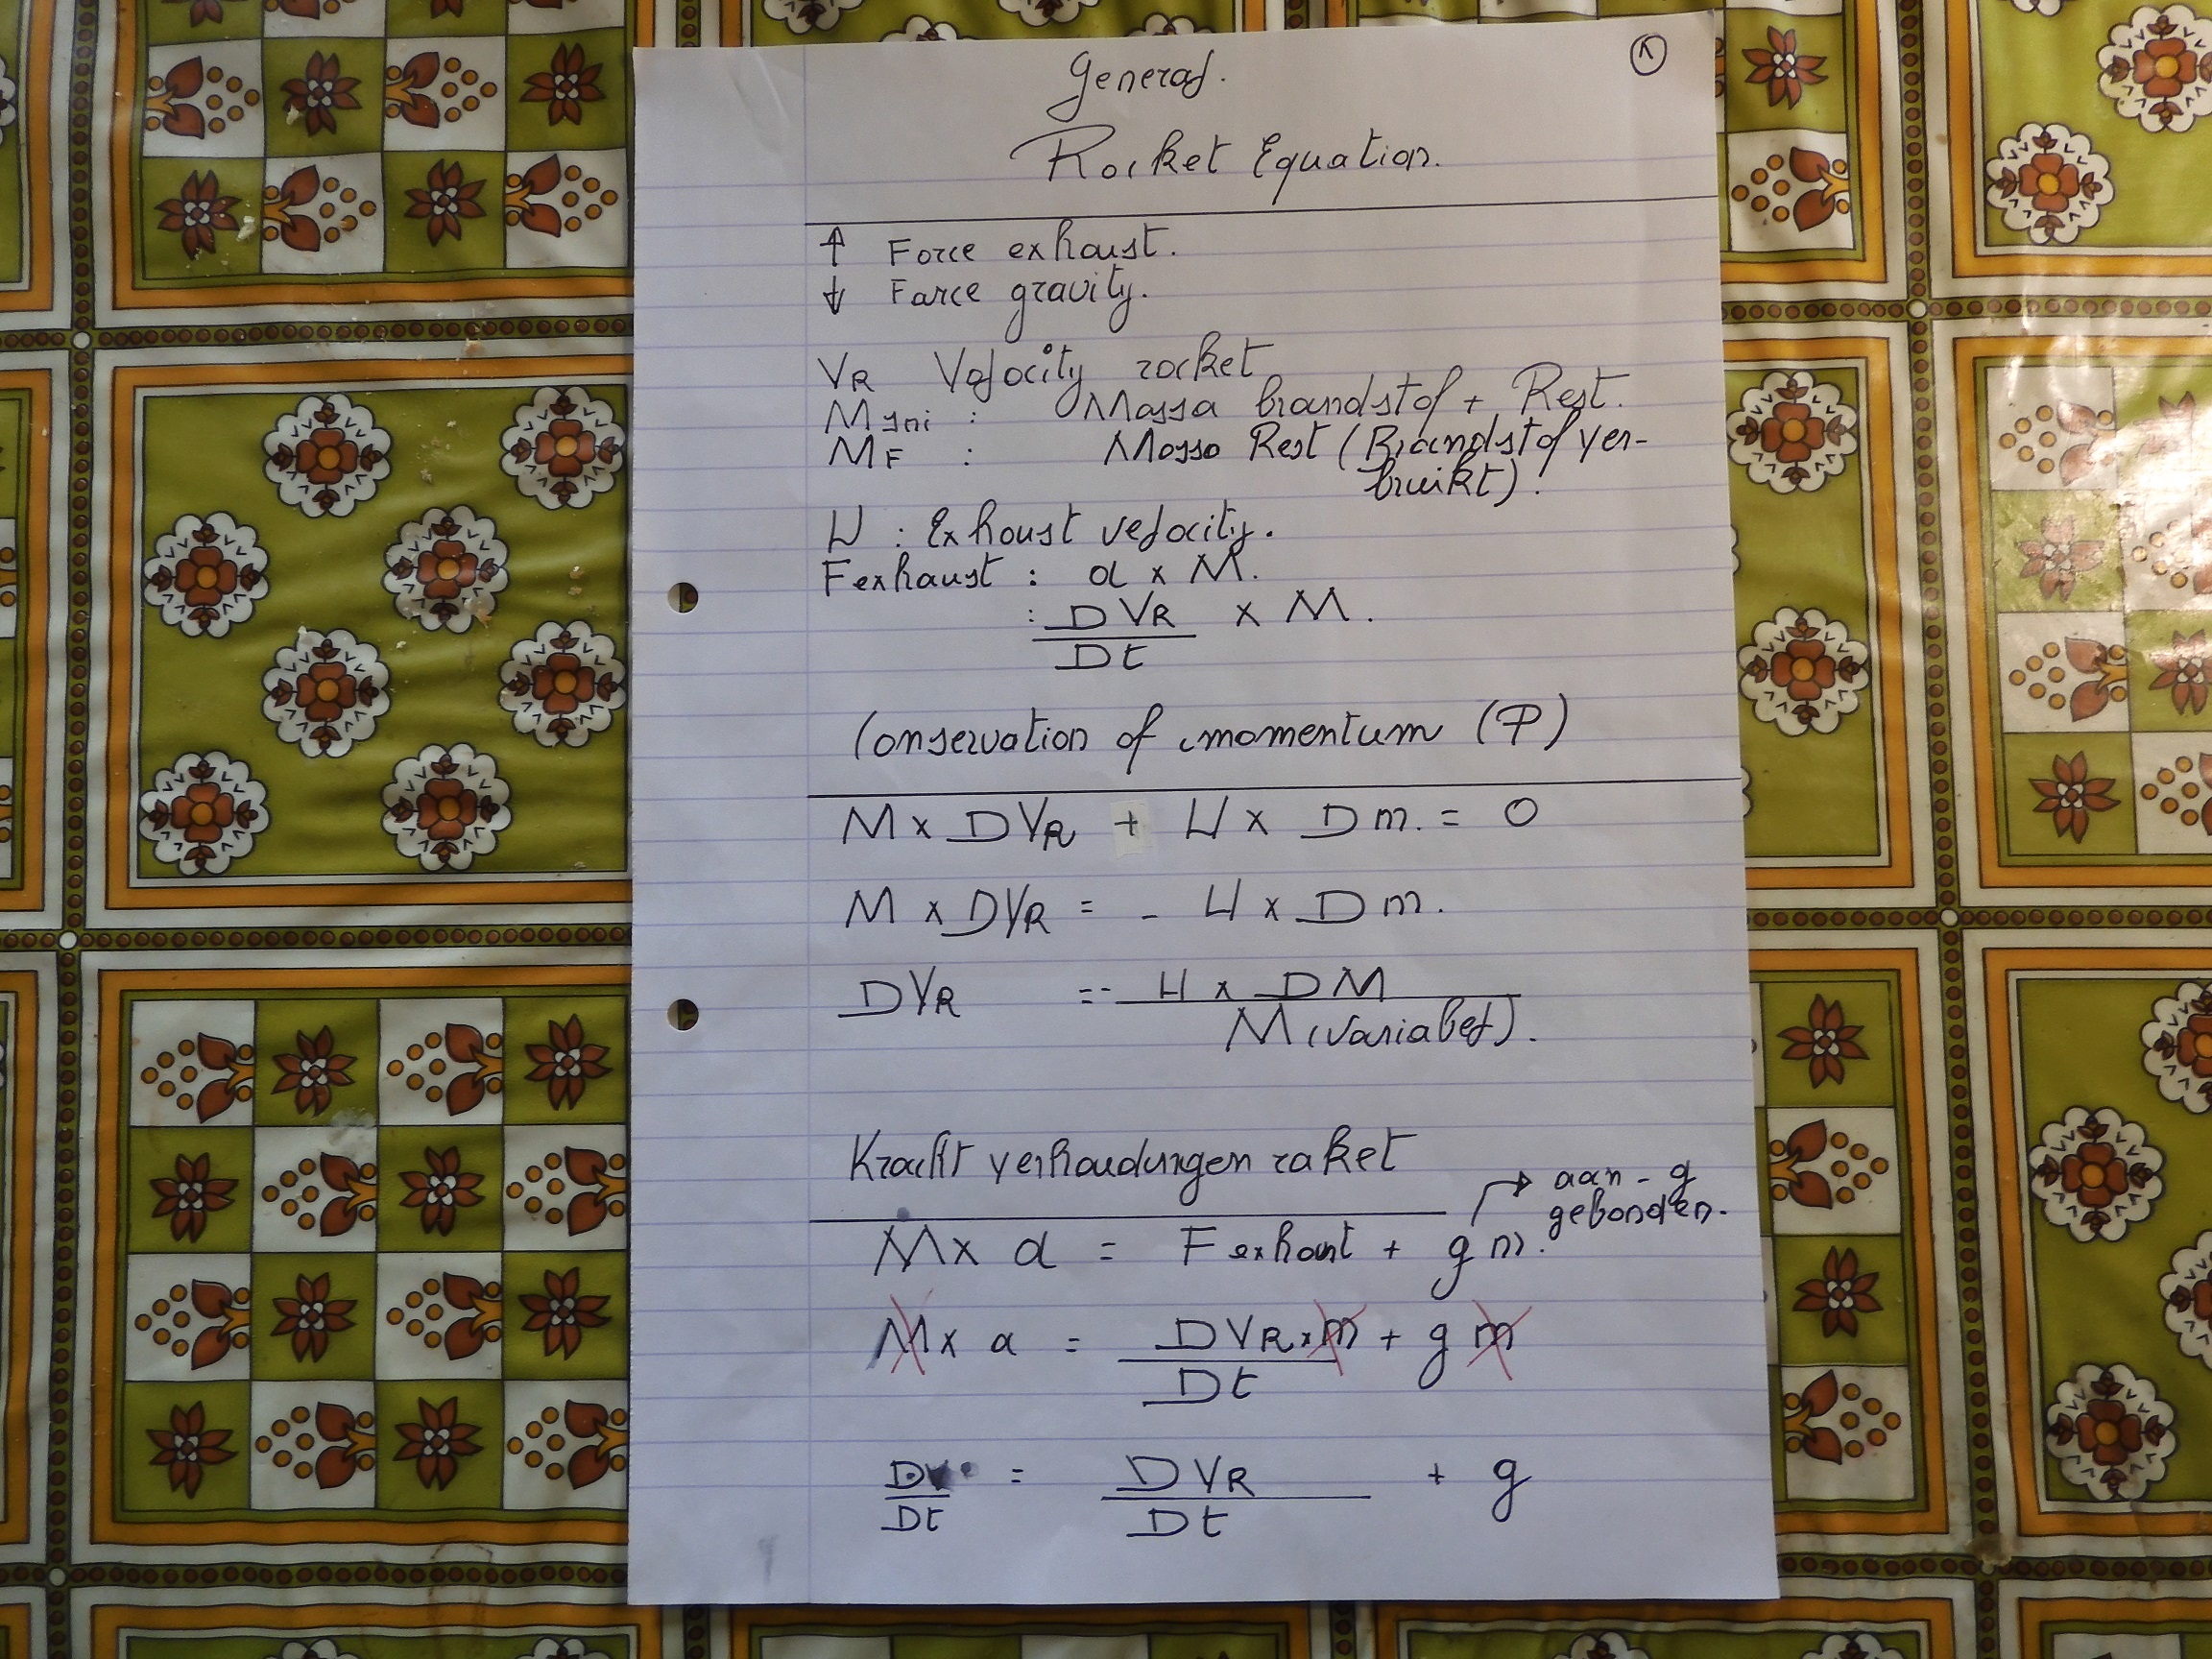 1
General.
Rocket Equation.
↑ Force exhaust.
↓ Farce gravity.
VR Velocity rocket
M ini : Massa brandstof + Rest.
MF : Massa Rest (Brandstof ver-
bruikt).
U : Exhoust velocity.
Fexhaust : a x M.
: DVR x M.
Dt
Conservation of momentum (P)
M x DVR + U x Dm. = 0
M x DVR = - U x Dm.
DVR = - U x DM
M (variabel).
Kracht verhoudingen raket
→ aan - g
gebonden.
M x a = F exhaust + g m.
M x a = DVR x m + g m
Dt
DV = DVR + g
Dt Dt